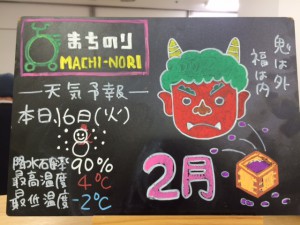 まちのり
MACHI-NORI
―天気予報―
本日、16日(火)
降水確率 90%
最高温度 4℃
最低温度 -2℃
鬼は外
福は内
2月